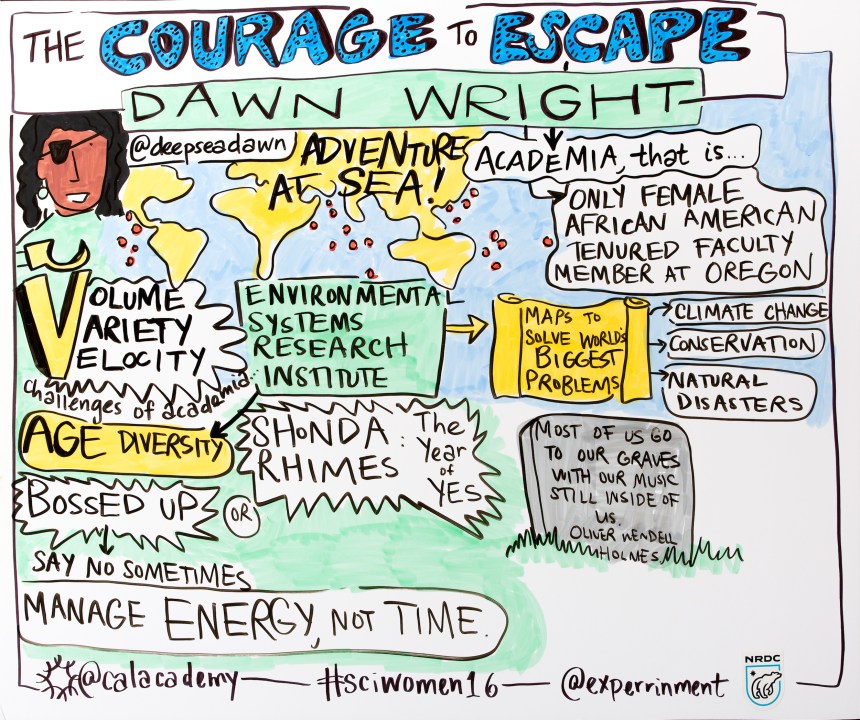 THE COURAGE TO ESCAPE
DAWN WRIGHT
@deepseadawn
ADVENTURE
AT SEA!
ACADEMIA, that is...
ONLY FEMALE
AFRICAN AMERICAN
TENURED FACULTY
MEMBER AT OREGON
VOLUME
VARIETY
VELOCITY
ENVIRONMENTAL
SYSTEMS
RESEARCH
INSTITUTE
MAPS TO
SOLVE WORLD'S
BIGGEST
PROBLEMS
CLIMATE CHANGE
CONSERVATION
NATURAL
DISASTERS
challenges of academia...
AGE DIVERSITY
BOSSED UP
OR
SHONDA
RHIMES
: The
Year
of
YES
SAY NO SOMETIMES
MANAGE ENERGY, NOT TIME.
MOST OF US GO
TO OUR GRAVES
WITH OUR MUSIC
STILL INSIDE OF
US.
OLIVER WENDELL
HOLMES
@calacademy
#sciwomen16
@experrinment
NRDC